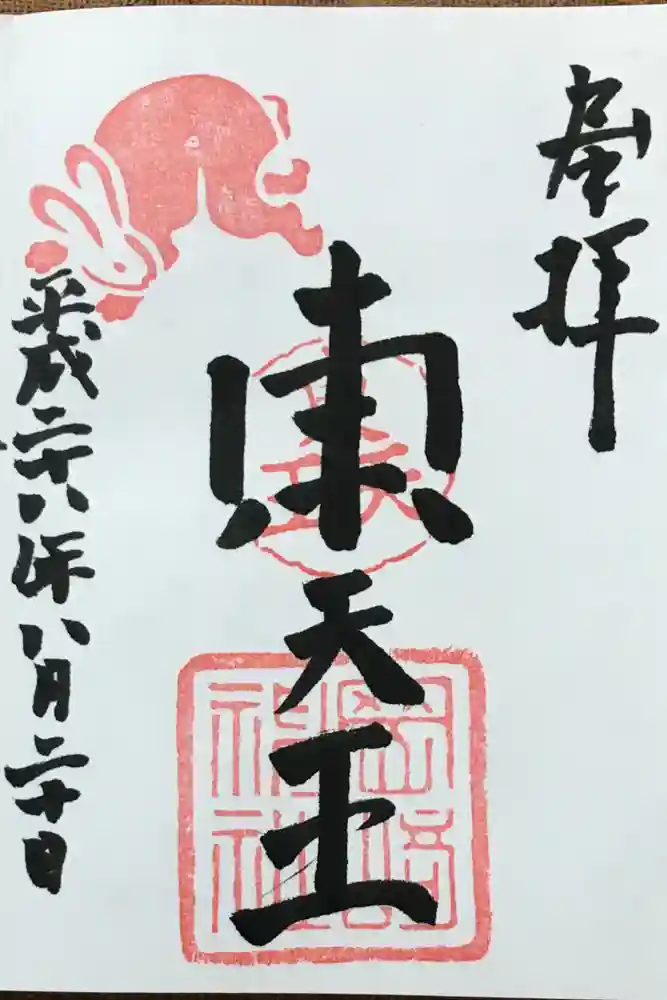 奉拝
東天王
岡崎
神社
平成二十八年八月二十日